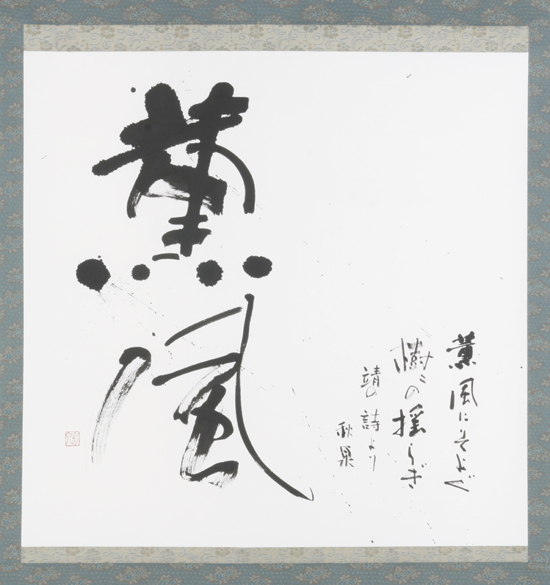 薫風
薫風にそよぐ
樹々の揺らぎ
靖の詩より
秋泉